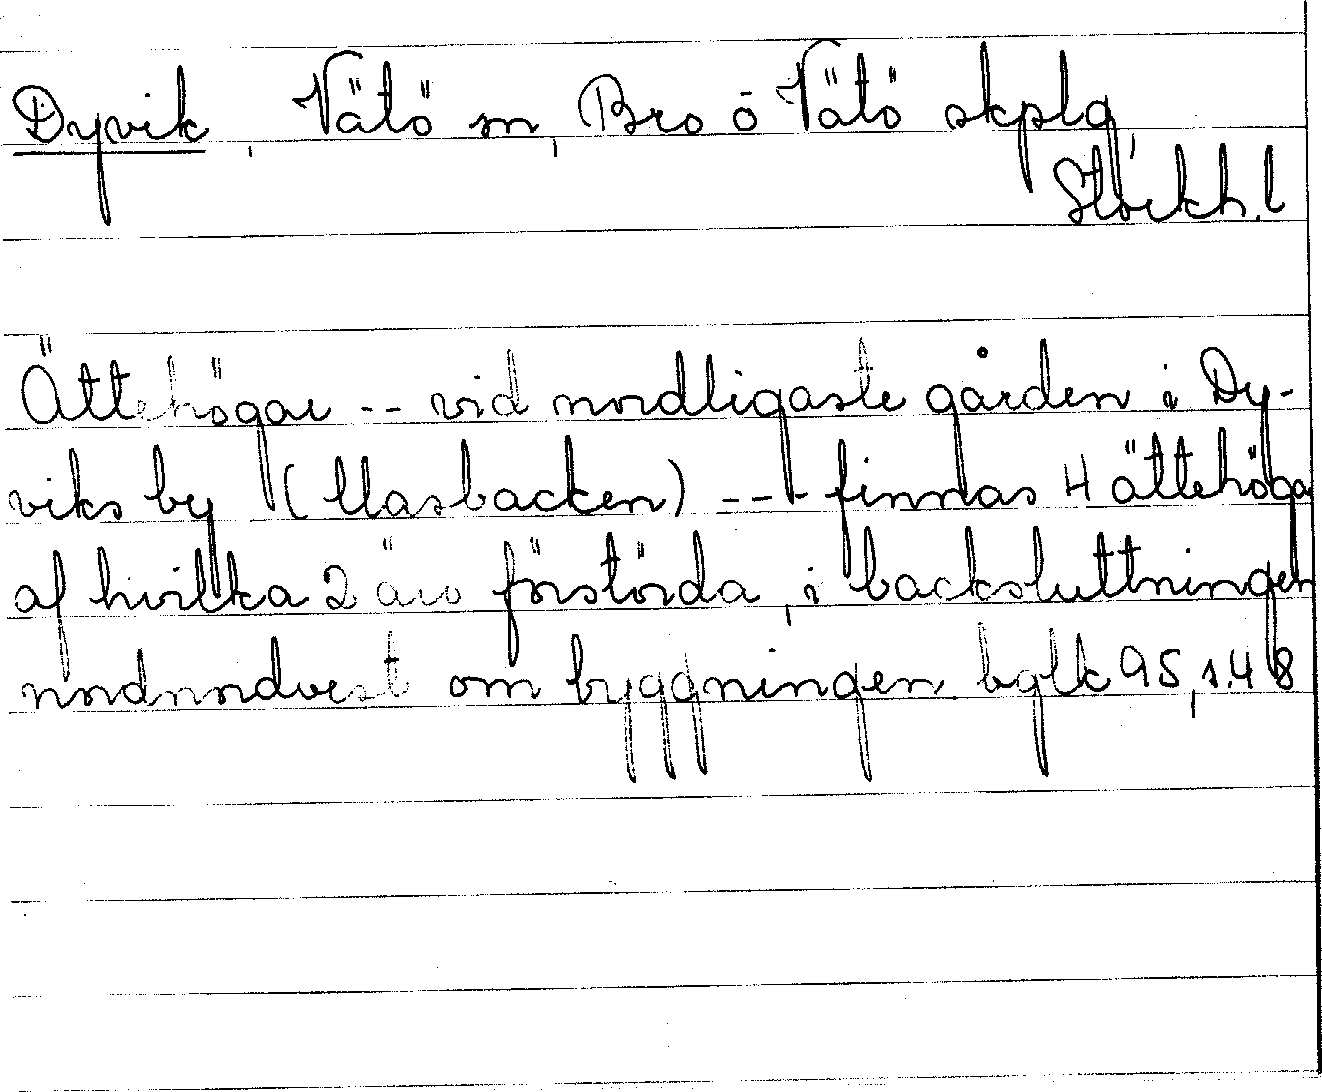 Dyvik, Vätö sn, Bro o Vätö skplg,
Stockh.l
Ättehögar -- vid nordligaste gården i Dy-
viks by (Masbacken) --- finnas 4 ättehögar
af hvilka 2 äro förstörda, i backsluttningen
nordnordvest om byggningen. bglk 95, s. 48